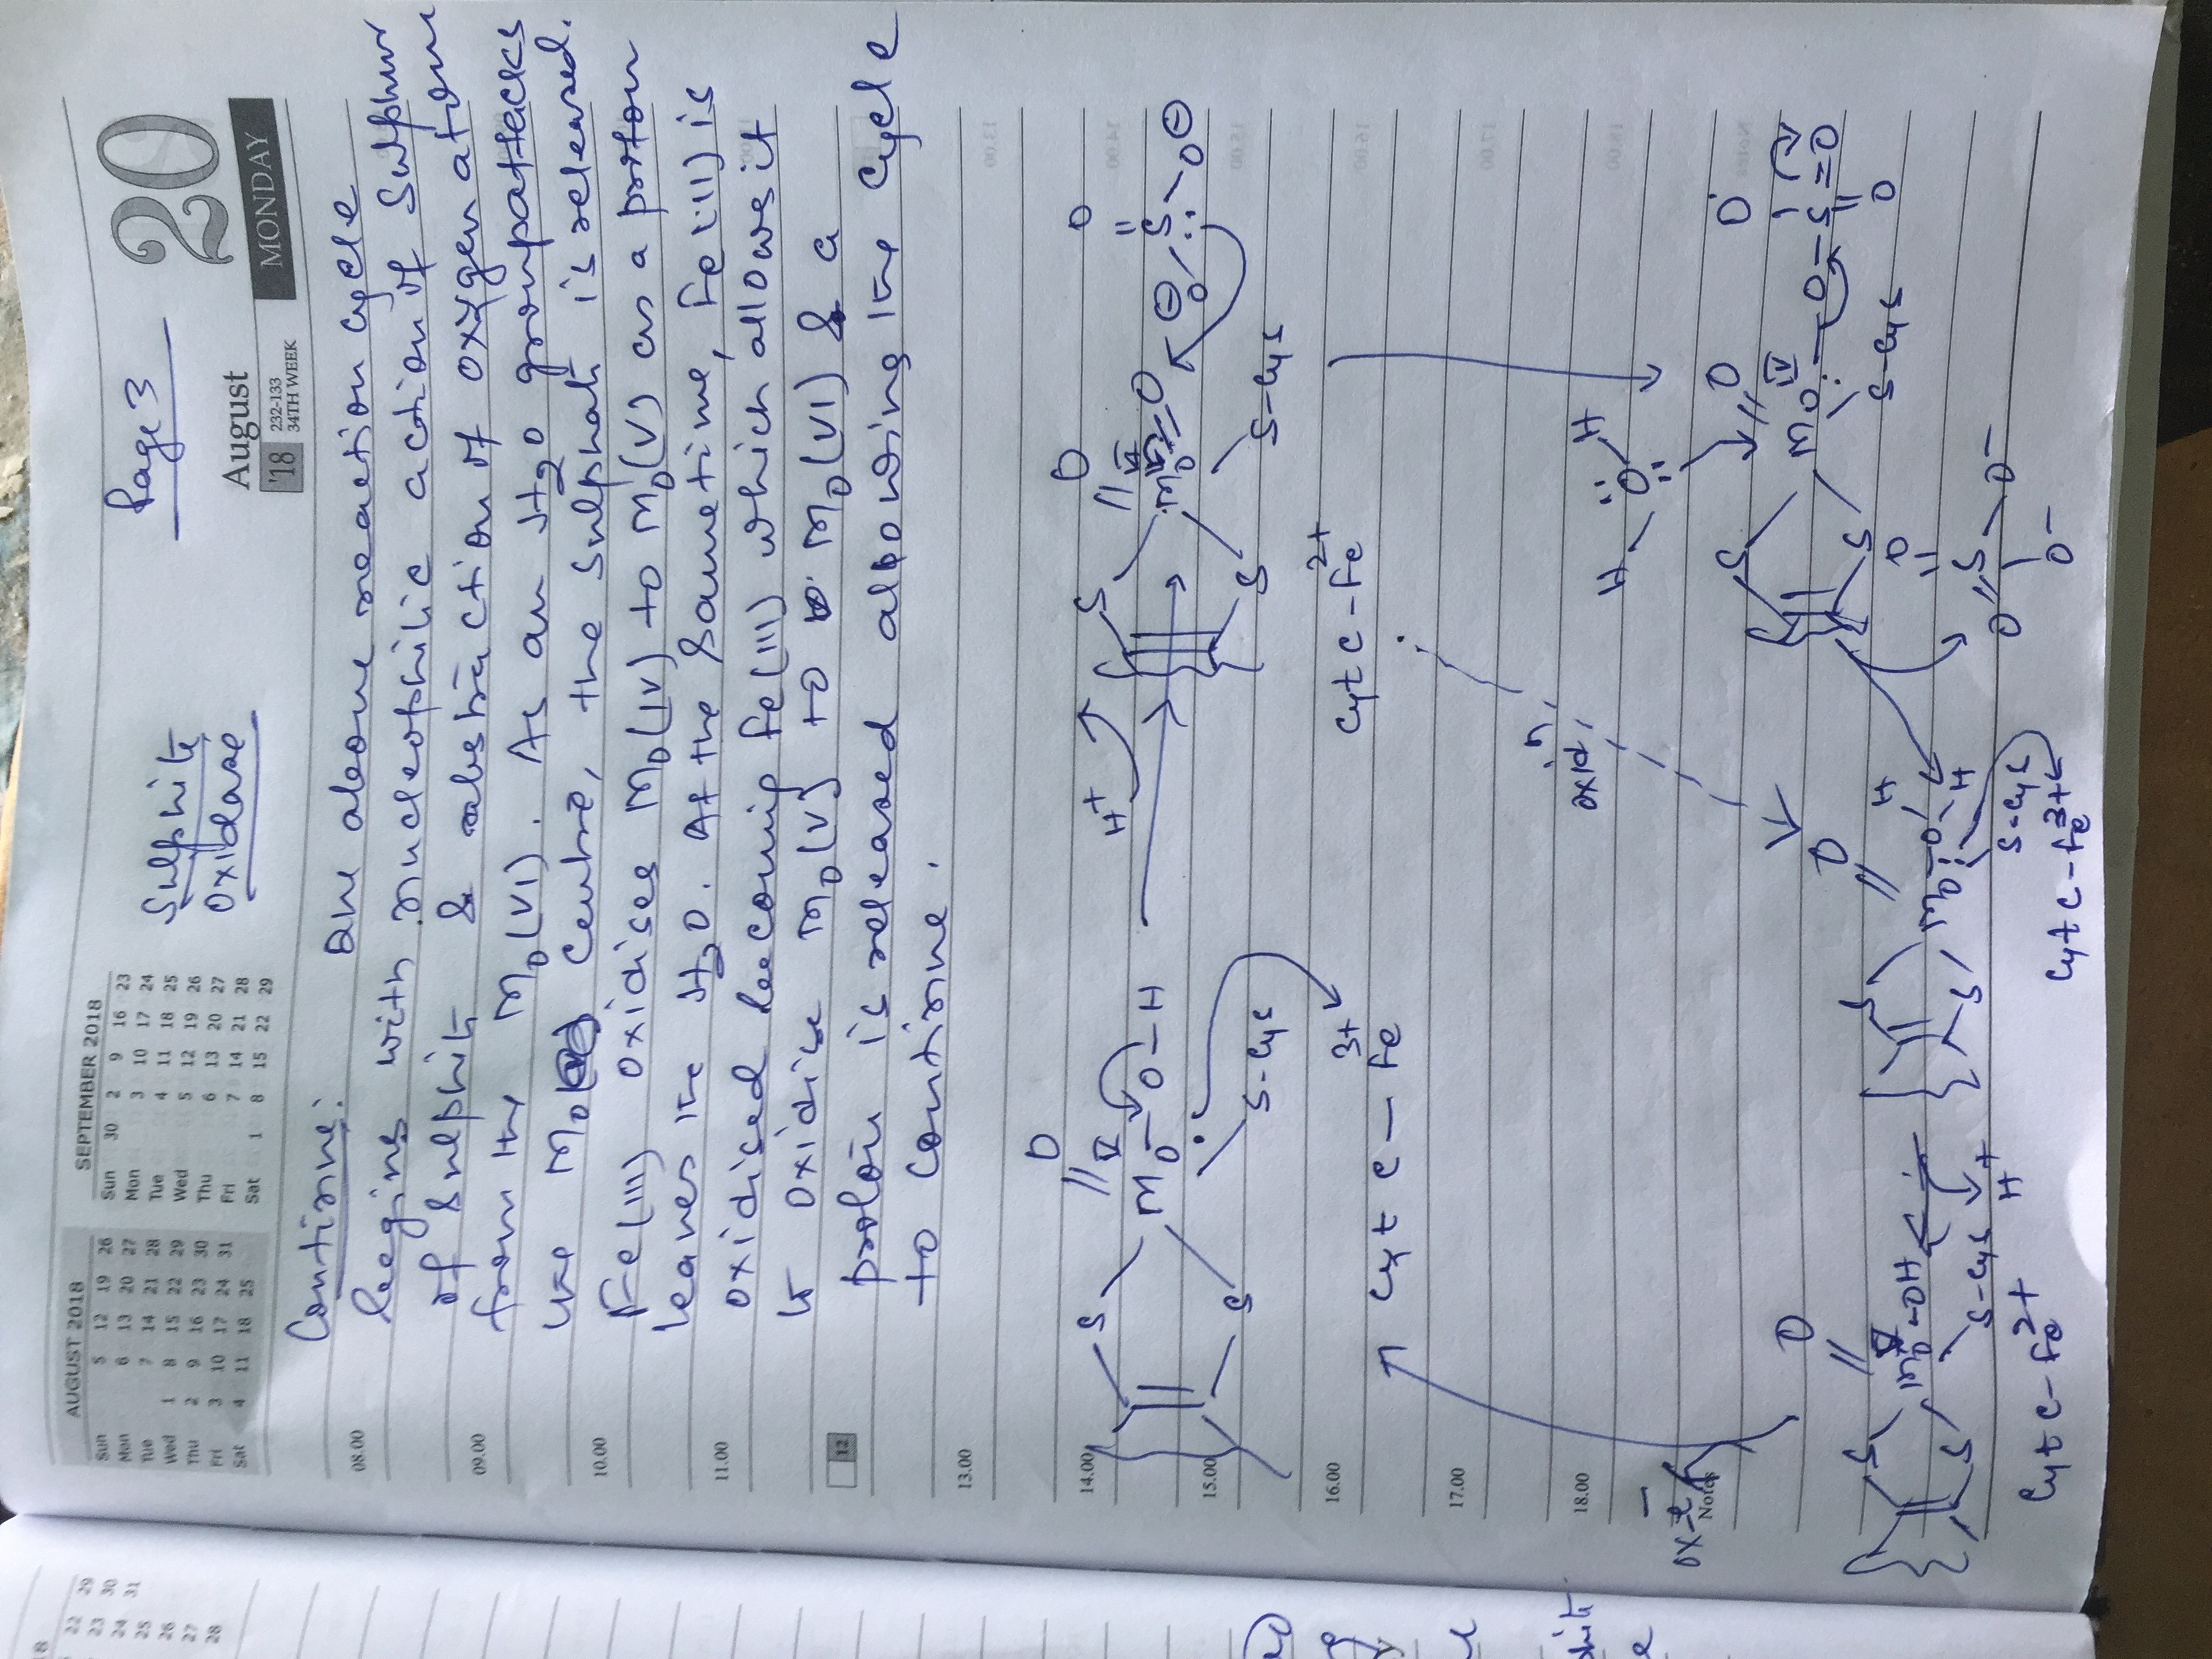 Page 3
Sulphite
Oxidase
AUGUST 2018
Sun 5 12 19 26
Mon 6 13 20 27
Tue 7 14 21 28
Wed 1 8 15 22 29
Thu 2 9 16 23 30
Fri 3 10 17 24 31
Sat 4 11 18 25
SEPTEMBER 2018
Sun 30 2 9 16 23
Mon 3 10 17 24
Tue 4 11 18 25
Wed 5 12 19 26
Thu 6 13 20 27
Fri 7 14 21 28
Sat 1 8 15 22 29
August
'18 232-133
34TH WEEK
20
MONDAY
Continue: one above reaction cycle
begins with nucleophilic action of Sulphur
of sulphite & abstraction of oxygen atom
from the Mo(VI). As an H2O group attacks
the Mo centre, the sulphate is released.
Fe(III) oxidises Mo(IV) to Mo(V) as a proton
leaves the H2O. At the same time, Fe(II) is
oxidised becoming Fe(III) which allows it
to oxidise Mo(V) to Mo(VI) & a
proton is released allowing the cycle
to continue.
08.00
09.00
10.00
11.00
12
13.00
14.00
15.00
16.00
17.00
18.00
Notes
O O O
S Mo V O-H H+ S Mo VI =O O S O
S S-Cys S S-Cys
Cyt c - Fe 3+ Cyt c - Fe 2+
oxid.
H-O-H
ox-e-
O O O
S Mo IV O-S=O
S S-Cys O
O
S Mo V -OH S Mo-O H H
S S-Cys H+ S S-Cys
O=S-O-
O-
Cyt c - Fe 2+ Cyt c - Fe 3+